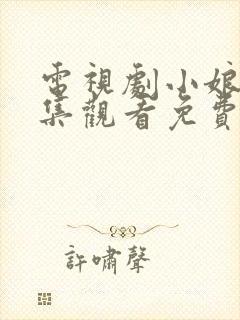 電視劇小娘
集觀看免費
許嘯聲